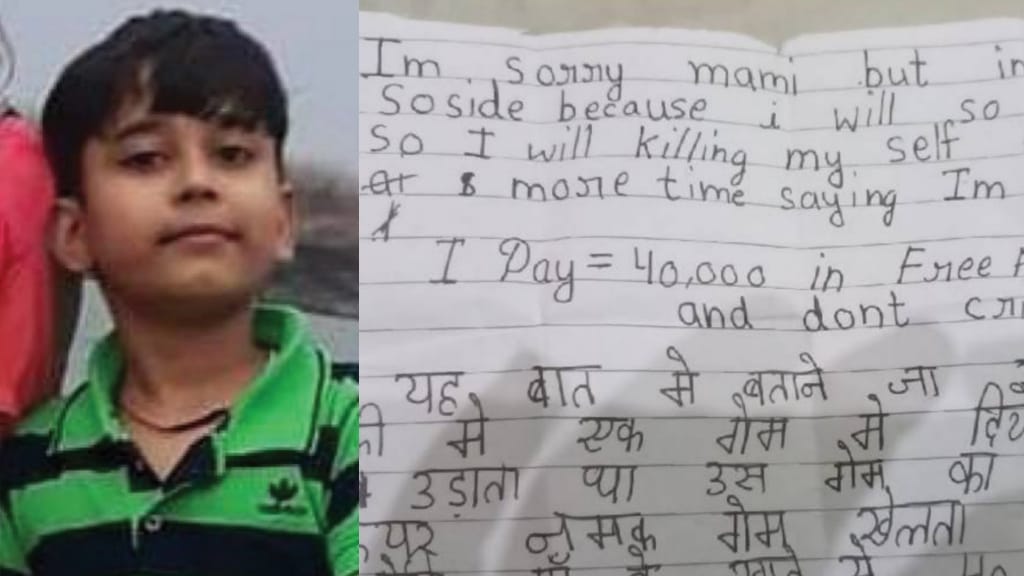 Im sorry mami but in
Soside because i will so
so I will killing my self
more time saying Im
I Pay = 40,000 in Free
and dont
यह बात मे बताने जा
की मे एक गेम मे
उड़ाता था उस गेम का
नामक गेम खेलता